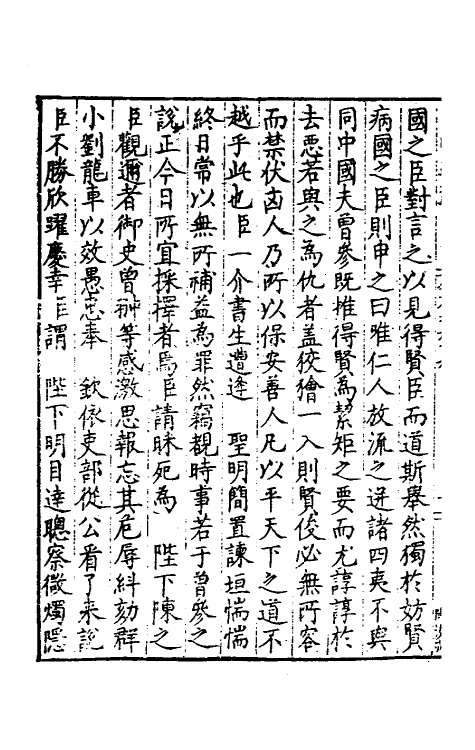 國之臣對言之以見得賢臣而道斯舉然獨於妨賢
病國之臣則申之曰唯仁人放流之迸諸四夷不與
同中國夫曾參既推得賢為絜矩之要而尤諄諄於
去惡若與之為仇者蓋狡獪一入則賢俊必無所容
而禁伏凶人乃所以保安善人凡以平天下之道不
越乎此也臣一介書生遭逢 聖明簡置諫垣惴惴
終日常以無所補益為罪然竊觀時事若于曾參之
說正今日所宜採擇者焉臣請昧死為 陛下陳之
臣觀邇者御史曾翀等感激思報忘其危辱糾劾群
小劉龍車以效愚忠奉 欽依吏部從公看了来說
臣不勝欣躍慶幸臣謂 陛下明目達聰察微燭隱